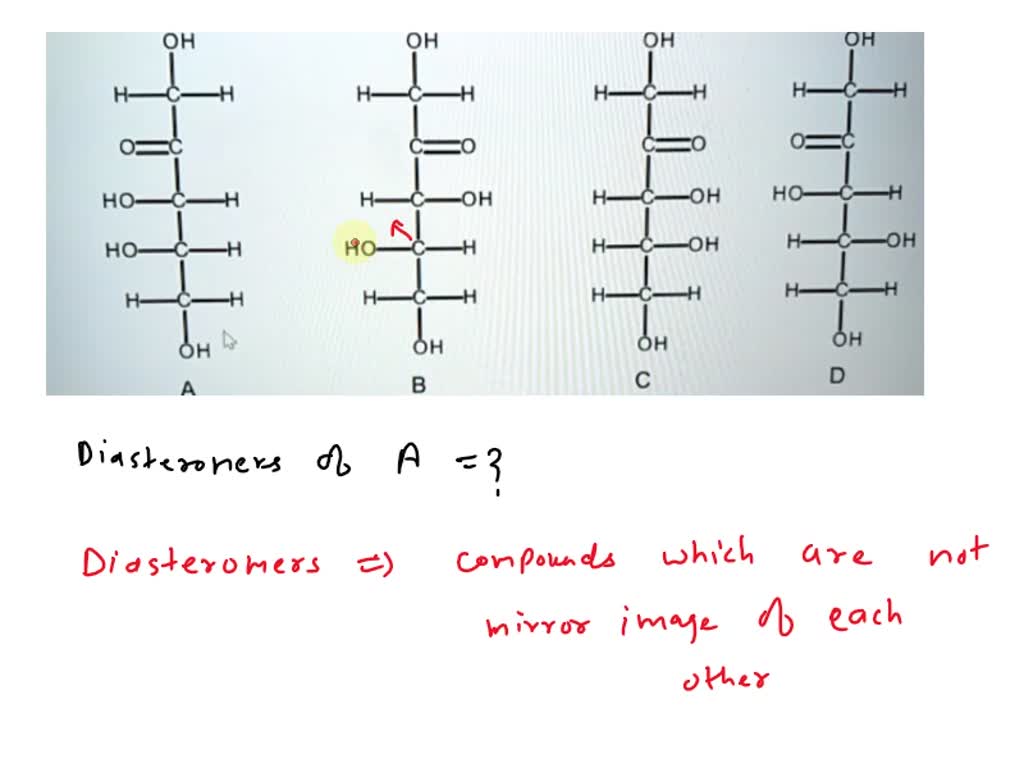 OH OH OH OH
H-C-H H-C-H H-C-H H-C-H
O=C C=O C=O O=C
HO-C-H H-C-OH H-C-OH HO-C-H
HO-C-H HO-C-H H-C-OH H-C-OH
H-C-H H-C-H H-C-H H-C-H
OH OH OH OH
A B C D
Diasteroners of A = ?
Diasteromers => compounds which are not
mirror image of each
other